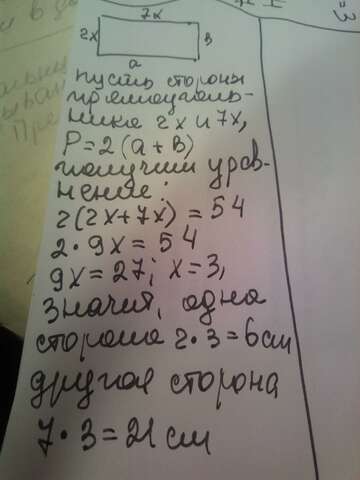 7х
2х
в
а
пусть стороны
прямоуголь-
ника 2х и 7х,
P=2(а+в)
получим урав-
нение:
2(2х+7х) = 54
2·9х = 54
9х = 27; х=3,
значит, одна
сторона 2·3=6см
другая сторона
7·3=21см